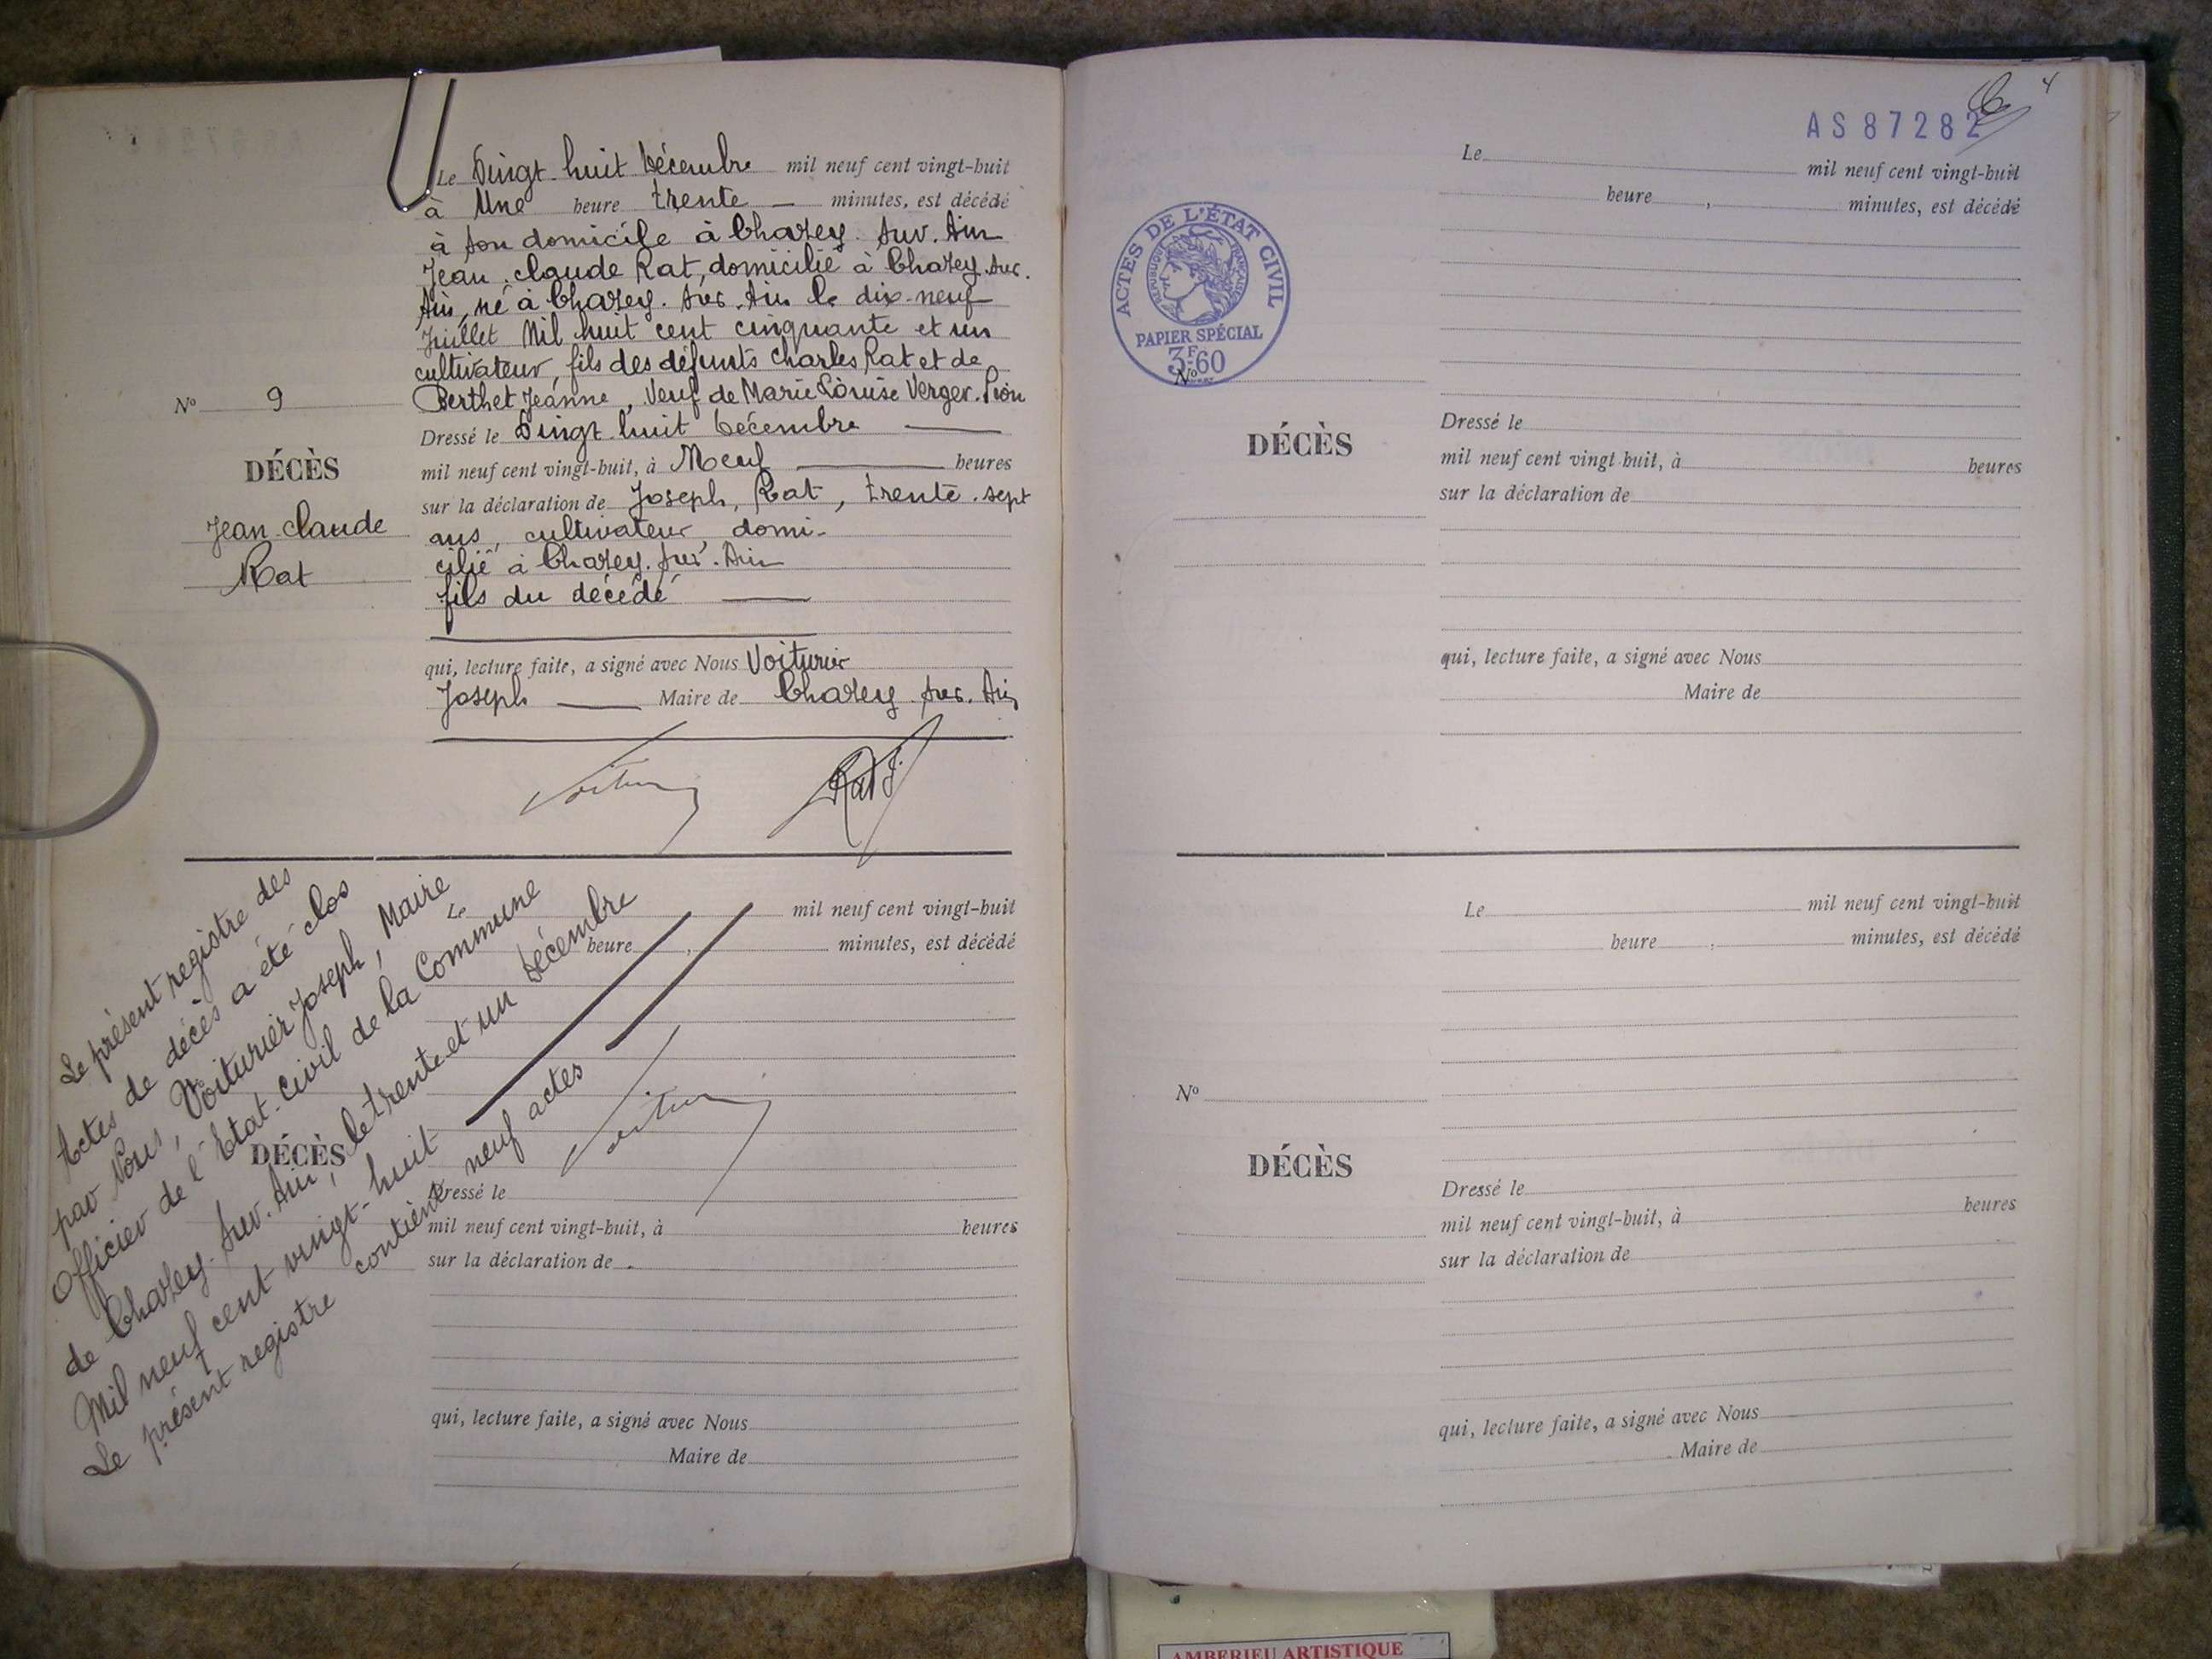 Le Vingt-huit Décembre mil neuf cent vingt-huit
à Une heure trente — minutes, est décédé
à son domicile à Chazey-sur-Ain
Jean-Claude Rat, domicilié à Chazey-sur-
Ain, né à Chazey-sur-Ain le dix-neuf
Juillet Mil huit cent cinquante et un
cultivateur, fils des défunts Charles Rat et de
Berthet Jeanne, Veuf de Marie Louise Verger-Pion
Dressé le Vingt-huit Décembre
mil neuf cent vingt-huit, à Neuf heures
sur la déclaration de Joseph, Rat, trente-sept
ans, cultivateur, domi-
cilié à Chazey-sur-Ain
fils du décédé
qui, lecture faite, a signé avec Nous Voiturier
Joseph — Maire de Chazey-sur-Ain
Rat J
No 9
DÉCÈS
Jean-Claude
Rat
Le mil neuf cent vingt-huit
heure, minutes, est décédé
DÉCÈS
Dressé le
mil neuf cent vingt-huit, à heures
sur la déclaration de
qui, lecture faite, a signé avec Nous
Maire de
Le présent registre des
Actes de décès a été clos
par Nous, Voiturier Joseph, Maire
Officier de l'Etat-Civil de la Commune
de Chazey-sur-Ain, le trente et un Décembre
Mil neuf cent vingt-huit
Le présent registre contient neuf actes
AS 87282
4
Le mil neuf cent vingt-huit
heure, minutes, est décédé
ACTES DE L'ÉTAT CIVIL
REPUBLIQUE FRANÇAISE
PAPIER SPÉCIAL
3F60
No
DÉCÈS
Dressé le
mil neuf cent vingt-huit, à heures
sur la déclaration de
qui, lecture faite, a signé avec Nous
Maire de
Le mil neuf cent vingt-huit
heure, minutes, est décédé
No
DÉCÈS
Dressé le
mil neuf cent vingt-huit, à heures
sur la déclaration de
qui, lecture faite, a signé avec Nous
Maire de
AMBERIEU ARTISTIQUE